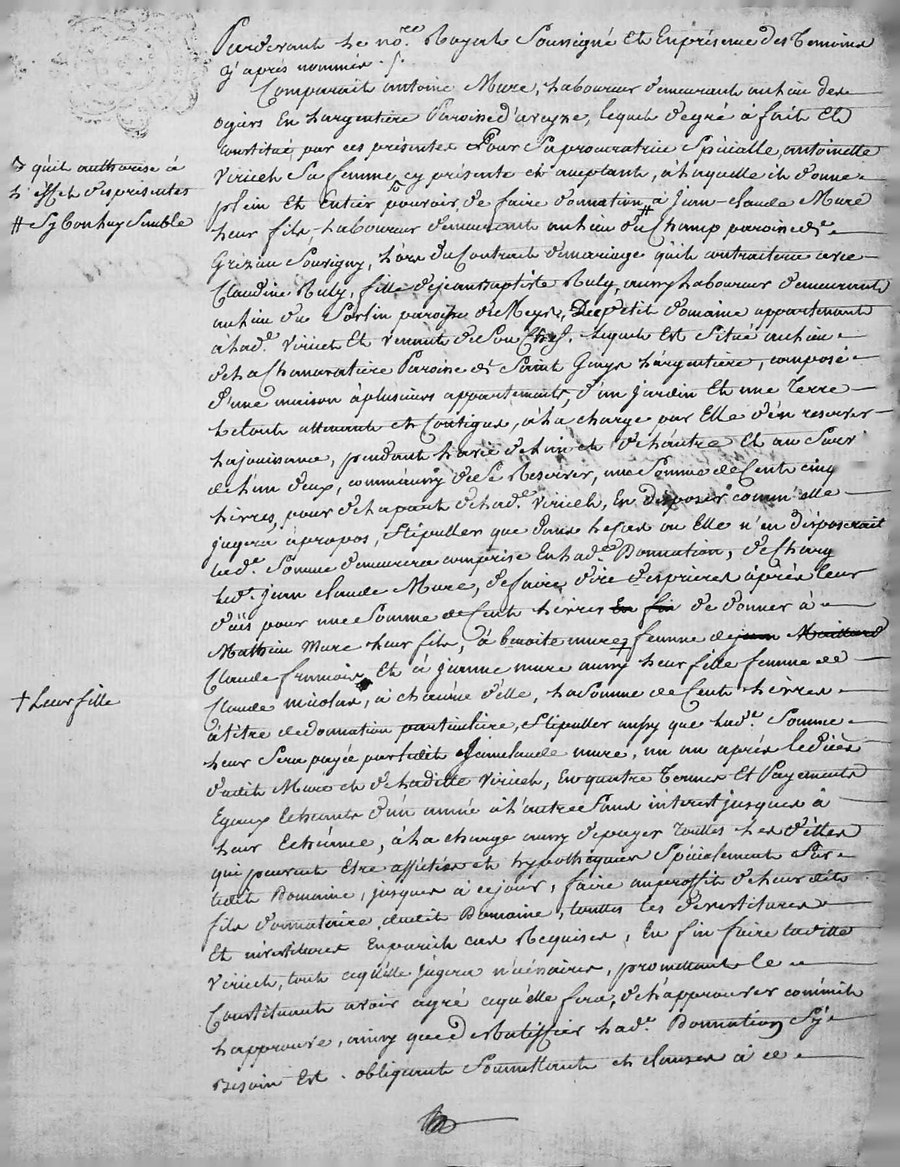 Pardevant le no.re Royal Soussigné Et En présence des Temoins
cy après nommés ./.
Comparait antoine Mure, Laboureur demeurant au lieu des
ogiers En Largentiere Paroisse d'aveyze, lequel de gré à fait Et
Constitué par ces présentes Pour Sa procuratrice Spécialle, antoinette
Viricel Sa femme, cy présente et aceptante, à laquelle il donne
plein Et Entier pouvoir, de faire donation à Jean-claude Mure
Leur fils Laboureur demeurant au lieu du Champ paroisse de
Grizeu Souvigny, Lors du Contrat de mariage qu'il contractera avec
Claudine Ruly, fille de jean Baptiste Ruly, aussy Laboureur demeurant
au lieu du paroisse de Meys, Du petit domaine appartenant
à lad.e Viricel Et venant de Son Chef. Lequel Est Situé au lieu
de la Chanavatière Paroisse de Saint Genys Largentiere, composé
d'une maison à plusieurs appartements, d'un Jardin Et une Terre
Le tout attenant et Contigus, à la charge par Elle d'en reserver
La jouissance, pendant La vie de L'un et de L'autre Et au Surv.
de L'un d'eux, comm'aussy de Se Reserver, une Somme de Cent cinq
Livres, pour de La part de Lad.e Viricel, En disposer comm'elle
jugera àpropos, Stipuller que dans Le Cas ou Elle n'en disposerait
lad.e Somme demeurera comprise En Lad.e Donnation, de Charg
Led. jean claude Mure, de faire dire des prieres après Leur
décés pour une Somme de Cent Livres En fin de donner à
Mathieu Mure Leur fils, à benoite mure femme de jean Maillard
Claude francois, Et à jeanne mure aussy Leur fille femme de
Claude nicolas, à chacune d'elle, La Somme de Cent Livres
à titre de donnation particulière, Stipuller aussy que Lad.e Somme
Leur Sera payée par ledit Jean claude mure, un an après Le décès
dudit Mure et de Ladite Viricel, En quatre Termes Et Payements
Egaux Echeants d'un année à L'autre Sans interest jusques à
Leur Echéance, à La charge aussy de payer Touttes Les dettes
qui peuvent Etre affectées et hypothequées Spécialement Sur
Ledit Domaine, jusques à ce jour, faire au proffit de Leur dit
fils donnataire dudit Domaine, touttes Les devestitures
Et investitures En pareil cas Requises, En fin faire Ladite
Viricel, tout ce qu'elle jugera nécessaires, promettant Le
Constituant avoir agré ce qu'elle fera, de L'approuver comm'il
L'approuve, ainsy que de Ratiffier Lad.e Donnation Sy
Besoin Est. obligeant Soumettant et clauses à ce
qu'il authorise à
L'effet des presentes
# Sy bon luy Semble
† Leur fille